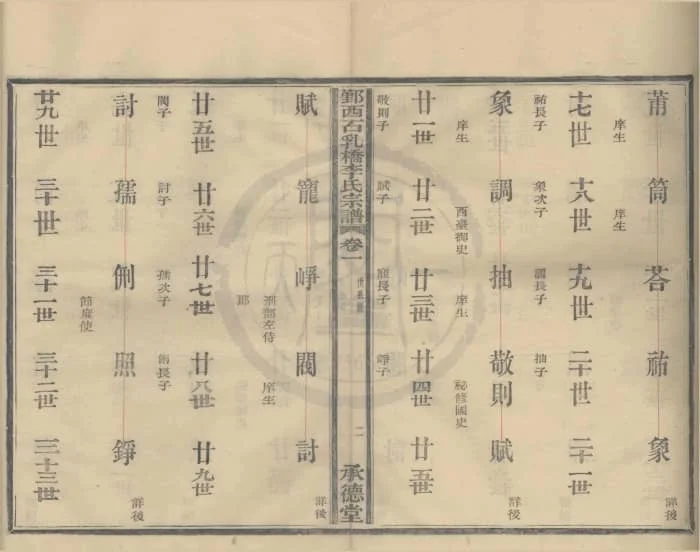 莆 筒 荅 祐 象
庠生 庠生
詳後
十七世 十八世 十九世 二十世 二十一世
祐長子 象次子 調長子 抽子
象 調 抽 敬則 賦
庠生 西臺御史 庠生 秘修國史
詳後
廿一世 廿二世 廿三世 廿四世 廿五世
敬則子 賦子 寵長子 崢子
鄞西石乳橋李氏宗譜 卷一 二 承德堂
賦 寵 崢 閣 討
刑部左侍郎 庠生
詳後
廿五世 廿六世 廿七世 廿八世 廿九世
閣子 討子 孺次子 俐長子
討 孺 俐 照 錚
節度使
詳後
廿九世 三十世 三十一世 三十二世 三十三世